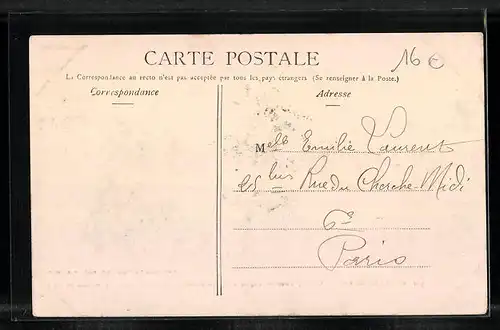 16 €
CARTE POSTALE
La Correspondance au recto n'est pas acceptée par tous les pays étrangers (Se renseigner à la Poste.)
Correspondance
Adresse
Melle Emilie Laurent
25 bis Rue du Cherche-Midi
6e
Paris